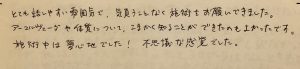 とても話しやすい雰囲気で、気負うことなく施術をお願いできました。
アーユルヴェーダや体質について、こまかく知ることができたのもよかったです。
施術中は夢心地でした！ 不思議な感覚でした。